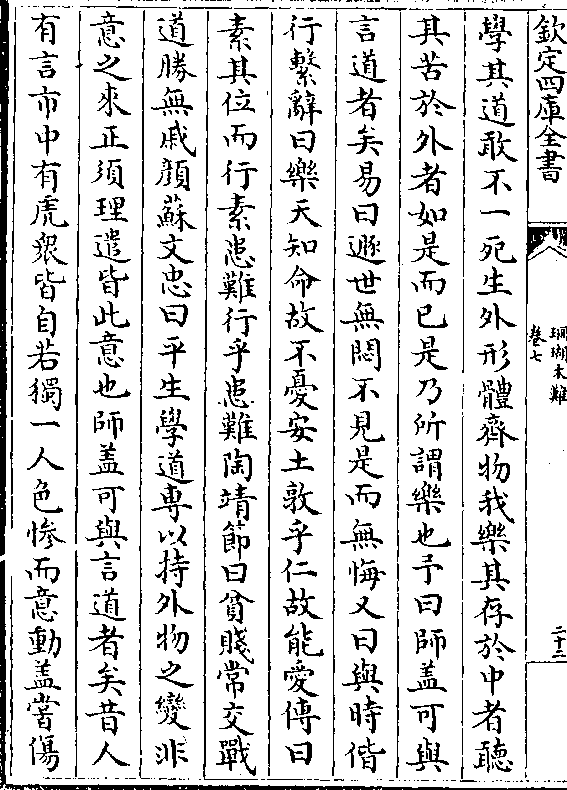 欽定四庫全書
珊瑚木難
卷七
二十二
學其道敢不一死生外形體齊物我樂其存於中者聽
其苦於外者如是而已是乃所謂樂也予曰師盖可與
言道者矣易曰遯世無悶不見是而無悔又曰與時偕
行繫辭曰樂天知命故不憂安土敦乎仁故能愛傳曰
素其位而行素患難行乎患難陶靖節曰貧賤常交戰
道勝無戚顔蘇文忠曰平生學道專以待外物之變非
意之來正須理遣皆此意也師盖可與言道者矣昔人
有言市中有虎衆皆自若獨一人色慘而意動盖嘗傷